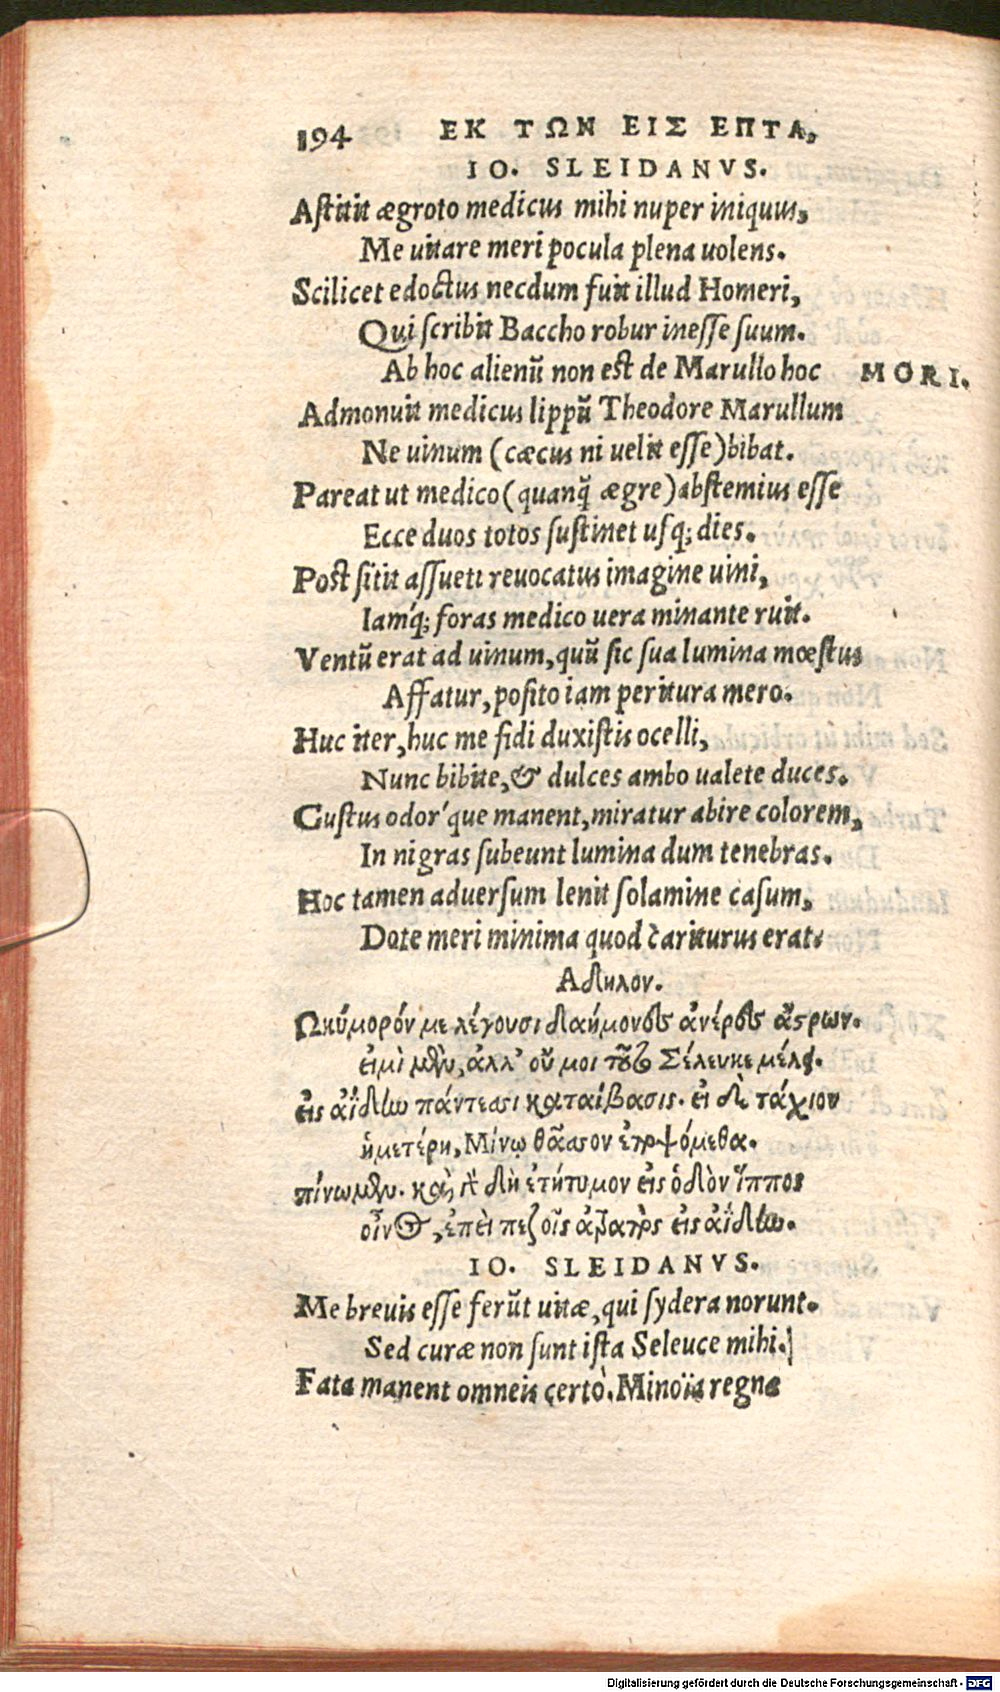 194 ΕΚ ΤΩΝ ΕΙΣ ΕΠΤΑ,
IO. SLEIDANVS.
Astitit ægroto medicus mihi nuper iniquus,
Me uitare meri pocula plena uolens.
Scilicet edoctus necdum fuit illud Homeri,
Qui scribit Baccho robur inesse suum.
Ab hoc alienũ non est de Marullo hoc MORI.
Admonuit medicus lippũ Theodore Marullum
Ne uinum (cæcus ni uelit esse) bibat.
Pareat ut medico (quanq̃ ægre) abstemius esse
Ecce duos totos sustinet usq; dies.
Post sitit assueti reuocatus imagine uini,
Iamq́; foras medico uera minante ruit.
Ventũ erat ad uinum, quũ sic sua lumina mœstus
Affatur, posito iam peritura mero.
Huc iter, huc me fidi duxistis ocelli,
Nunc bibite, & dulces ambo ualete duces.
Gustus odor'que manent, miratur abire colorem,
In nigras subeunt lumina dum tenebras.
Hoc tamen aduersum lenit solamine casum,
Dote meri minima quod cariturus erat.
Αδηλον.
Ωκύμορόν με λέγουσι δαήμονες ἀνέρες ἄστρων.
εἰμὶ μὲν, ἀλλ' οὔ μοι τοῦτο Σέλευκε μέλει.
εἰς ἀΐδην πάντεσσι καταίβασις. εἰ δὲ τάχιον
ἡμετέρη, Μίνω θᾶσσον ἐποψόμεθα.
πίνωμεν. καὶ δὴ ἐτήτυμον εἰς ὁδὸν ἵππος
οἶνος, ἐπεὶ πεζοῖς ἀτραπὸς εἰς ἀΐδην.
IO. SLEIDANVS.
Me breuis esse ferũt uitæ, qui sydera norunt.
Sed curæ non sunt ista Seleuce mihi.
Fata manent omneis certò. Minoïa regna
Digitalisierung gefördert durch die Deutsche Forschungsgemeinschaft - DFG